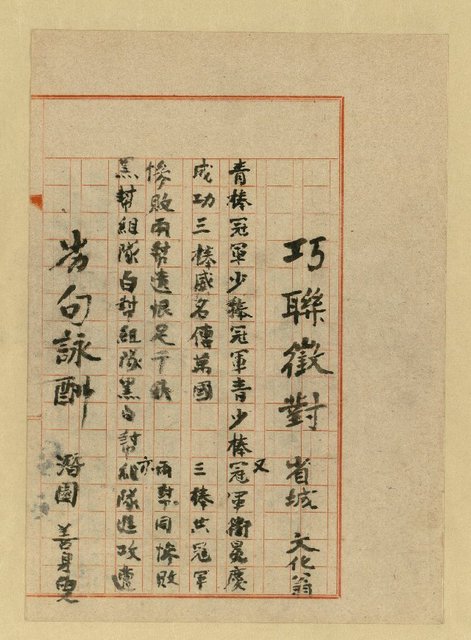 巧聯徵對 省城 文化翁
青棒冠軍少棒冠軍青少棒冠軍衛冕慶
成功三棒威名傳萬國 又 三棒共冠軍
慘敗兩幫遺恨足千秋 亦 兩幫同慘敗
黑幫組隊白幫組隊黑白幫組隊進攻遭
劣句詠酬 潛園 善身叟